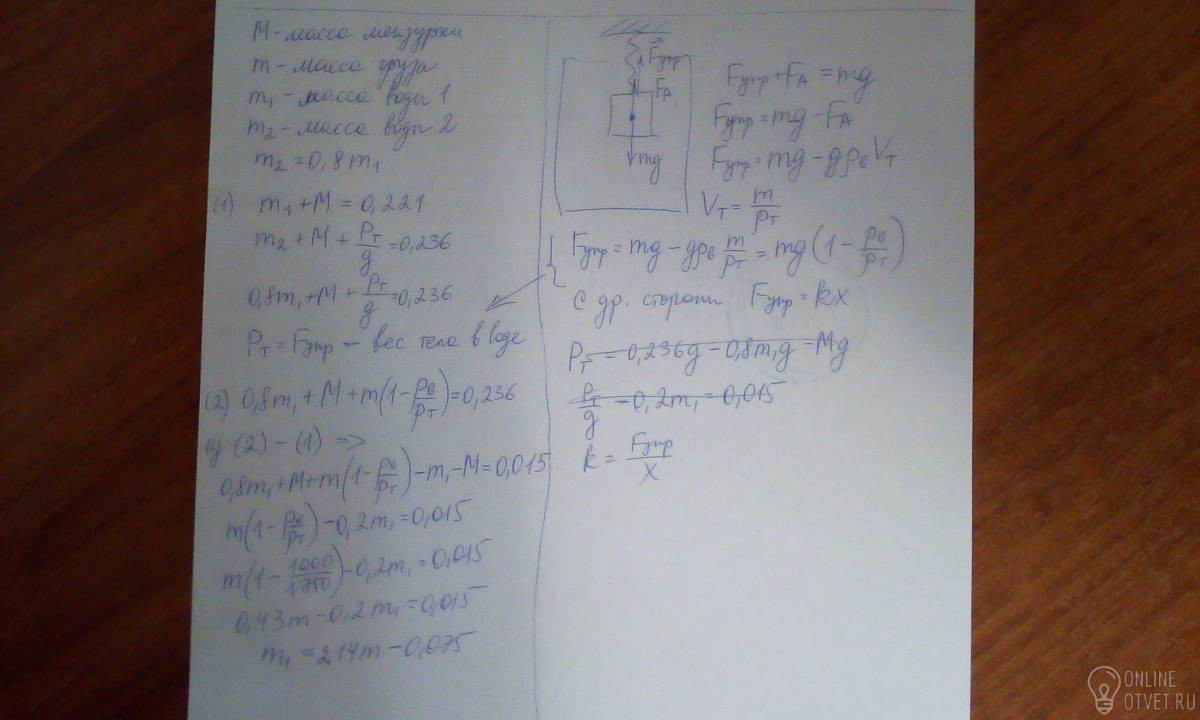 M - масса мензурки
m - масса груза
m₁ - масса воды 1
m₂ - масса воды 2
m₂ = 0,8m₁
(1) m₁ + M = 0,221
m₂ + M + Pт/g = 0,236
0,8m₁ + M + Pт/g = 0,236
Pт = Fупр - вес тела в воде
(2) 0,8m₁ + M + m(1 - ρв/ρт) = 0,236
(2) - (1) =>
0,8m₁ + M + m(1 - ρв/ρт) - m₁ - M = 0,015
m(1 - ρв/ρт) - 0,2m₁ = 0,015
m(1 - 1000/1750) - 0,2m₁ = 0,015
0,43m - 0,2m₁ = 0,015
m₁ = 2,14m - 0,075
Fупр
FA
mg
Fупр + FA = mg
Fупр = mg - FA
Fупр = mg - gρв Vт
Vт = m/ρт
Fупр = mg - gρв m/ρт = mg(1 - ρв/ρт)
С др. стороны Fупр = kx
Pт = 0,236g - 0,8m₁g = Mg
Pт/g - 0,2m₁ = 0,015
k = Fупр/x
ONLINE
OTVET.RU